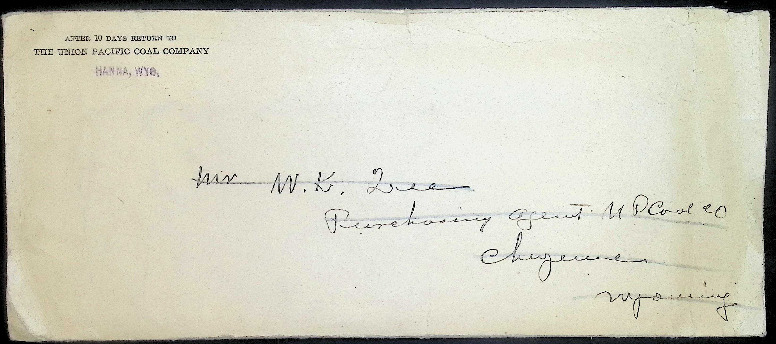 AFTER 10 DAYS RETURN TO
THE UNION PACIFIC COAL COMPANY
HANNA, WYO.
Mr W. K. Lee
Purchasing Agent U P Coal Co
Cheyenne
Wyoming